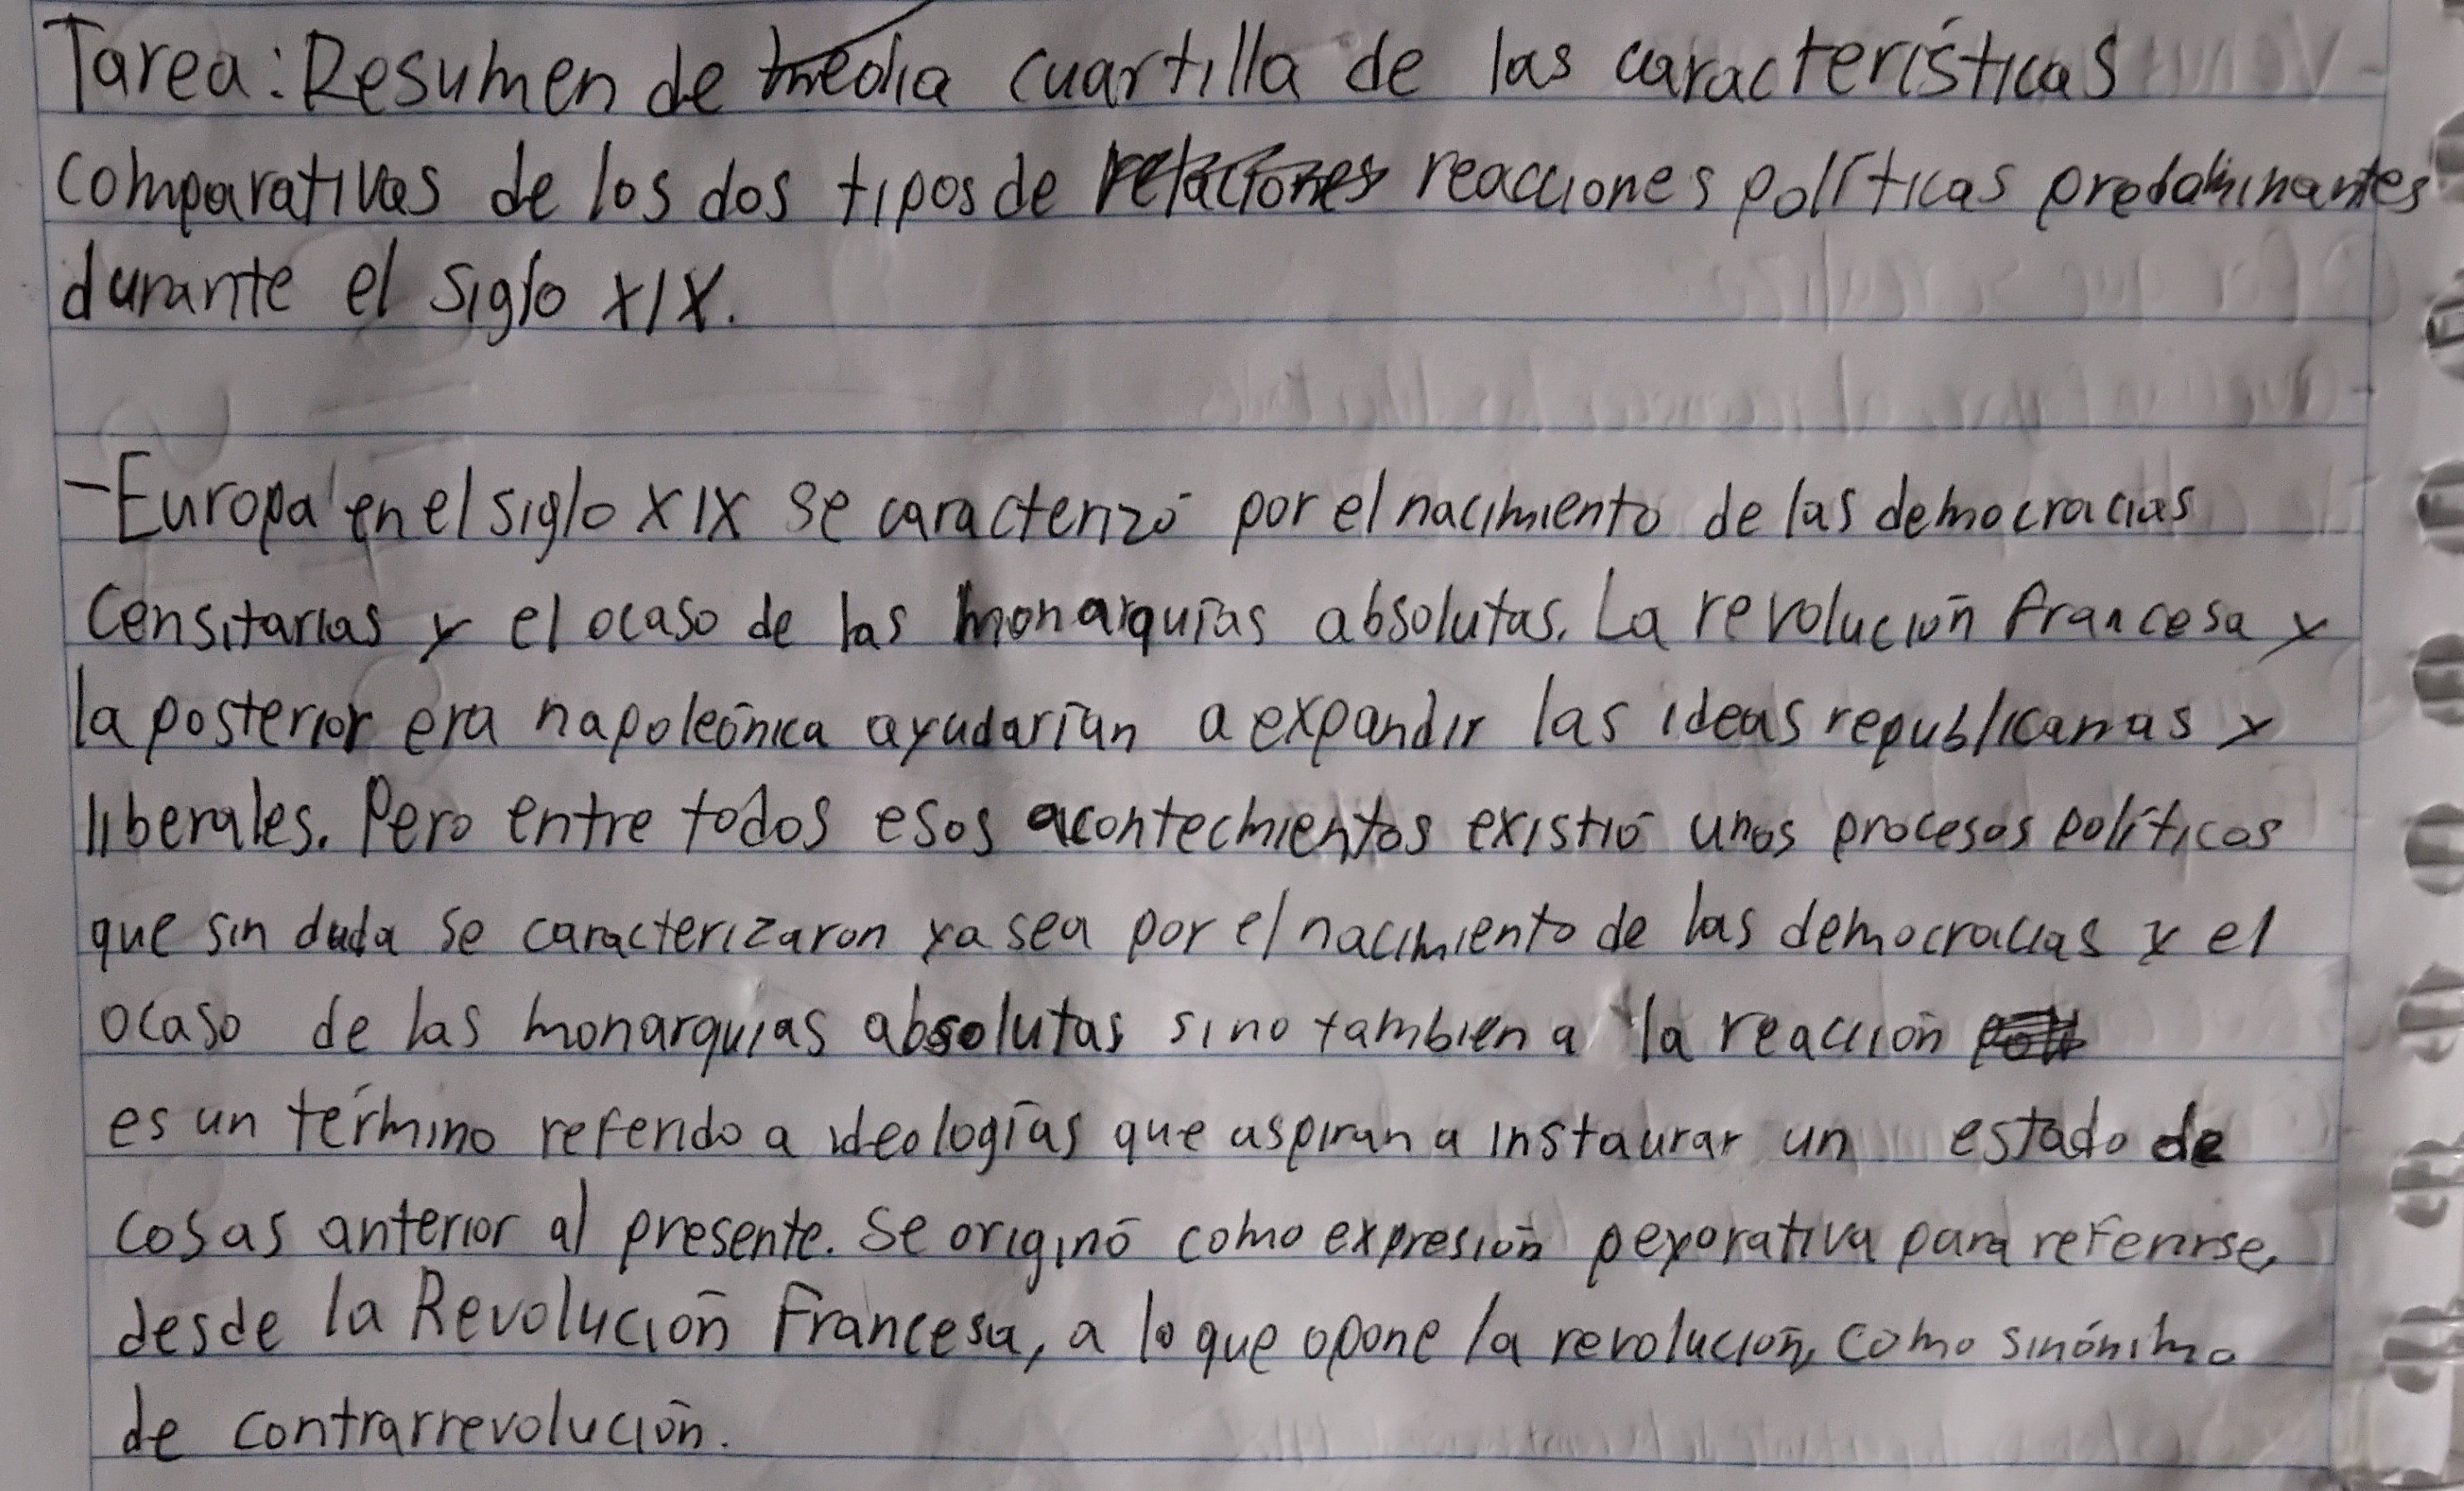 Tarea: Resumen de media cuartilla de las características
comparativas de los dos tipos de relaciones reacciones políticas predominantes
durante el siglo XIX.
-Europa en el siglo XIX se caracterizó por el nacimiento de las democracias
Censitarias y el ocaso de las monarquías absolutas. La revolución francesa y
la posterior era napoleónica ayudarían a expandir las ideas republicanas y
liberales. Pero entre todos esos acontecmientos existió unos procesos políticos
que sin duda se caracterizaron ya sea por el nacimiento de las democracias y el
ocaso de las monarquías absolutas sino tambien a la reacción
es un término referido a ideologías que aspiran a instaurar un estado de
cosas anterior al presente. Se originó como expresión peyorativa para referirse,
desde la Revolución Francesa, a lo que opone la revolución, como sinónimo
de contrarrevolución.